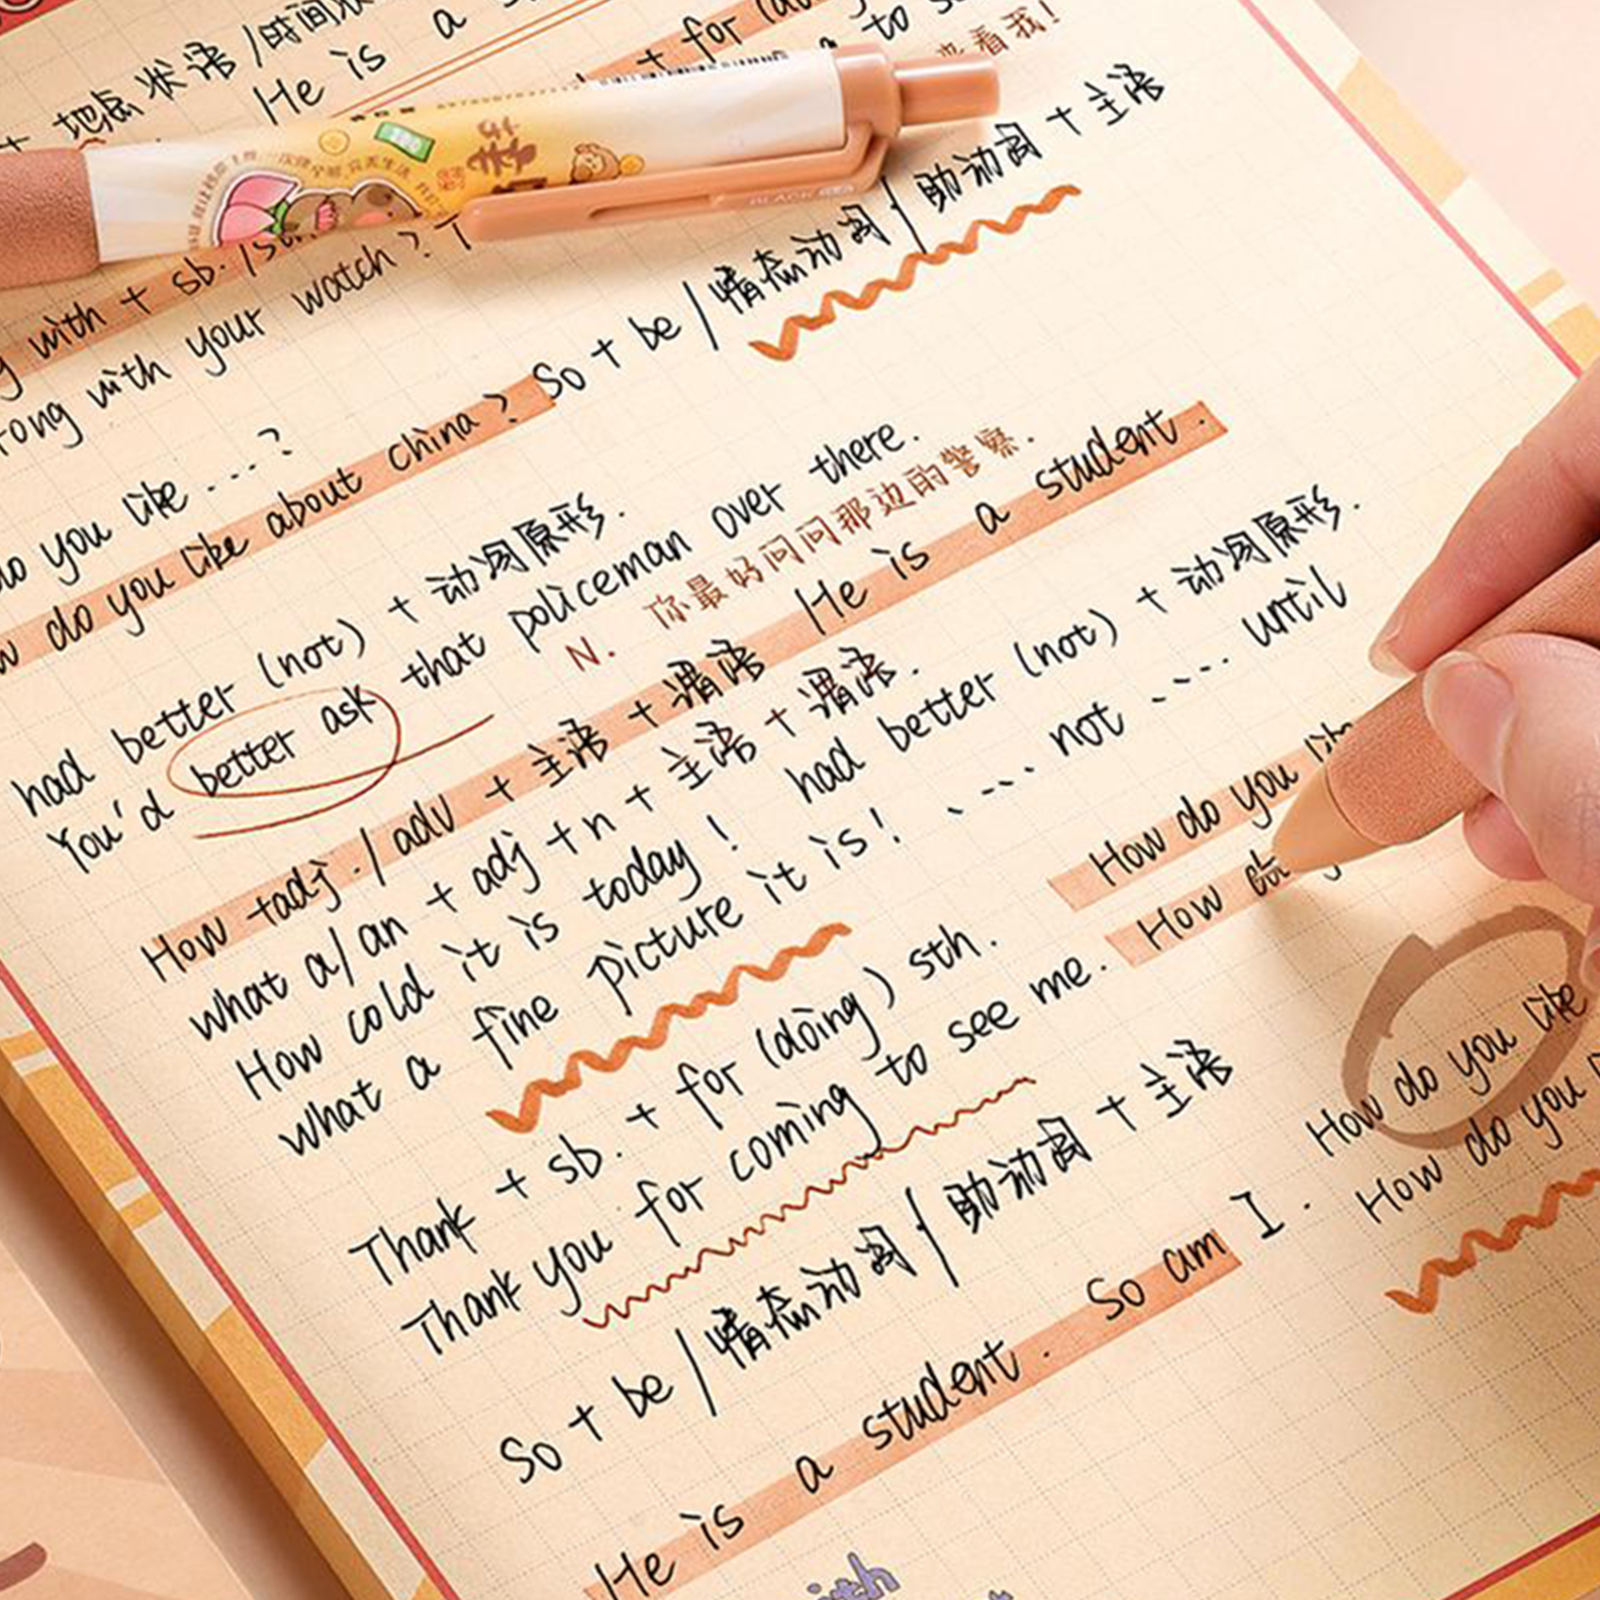 + 地点状语/时间状
He is a
+ for (do
to s
来看我!
BLACK
with + sb. /st
rong with your watch? T
So + be / 情态动词 / 助动词 + 主语
do you like ....?
w do you like about china?
had better (not) + 动词原形.
You'd better ask that policeman over there.
N. 你最好问问那边的警察.
How +adj. / adv + 主语 + 谓语 He is a student.
what a/an + adj + n + 主语 + 谓语. had better (not) + 动词原形.
How cold it is today! .... not .... until
what a fine picture it is! How do you lik
Thank + sb. + for (doing) sth. How
Thank you for coming to see me.
How do you like
How do you
So + be / 情态动词 / 助动词 + 主语
He is a student. So am I.
ith